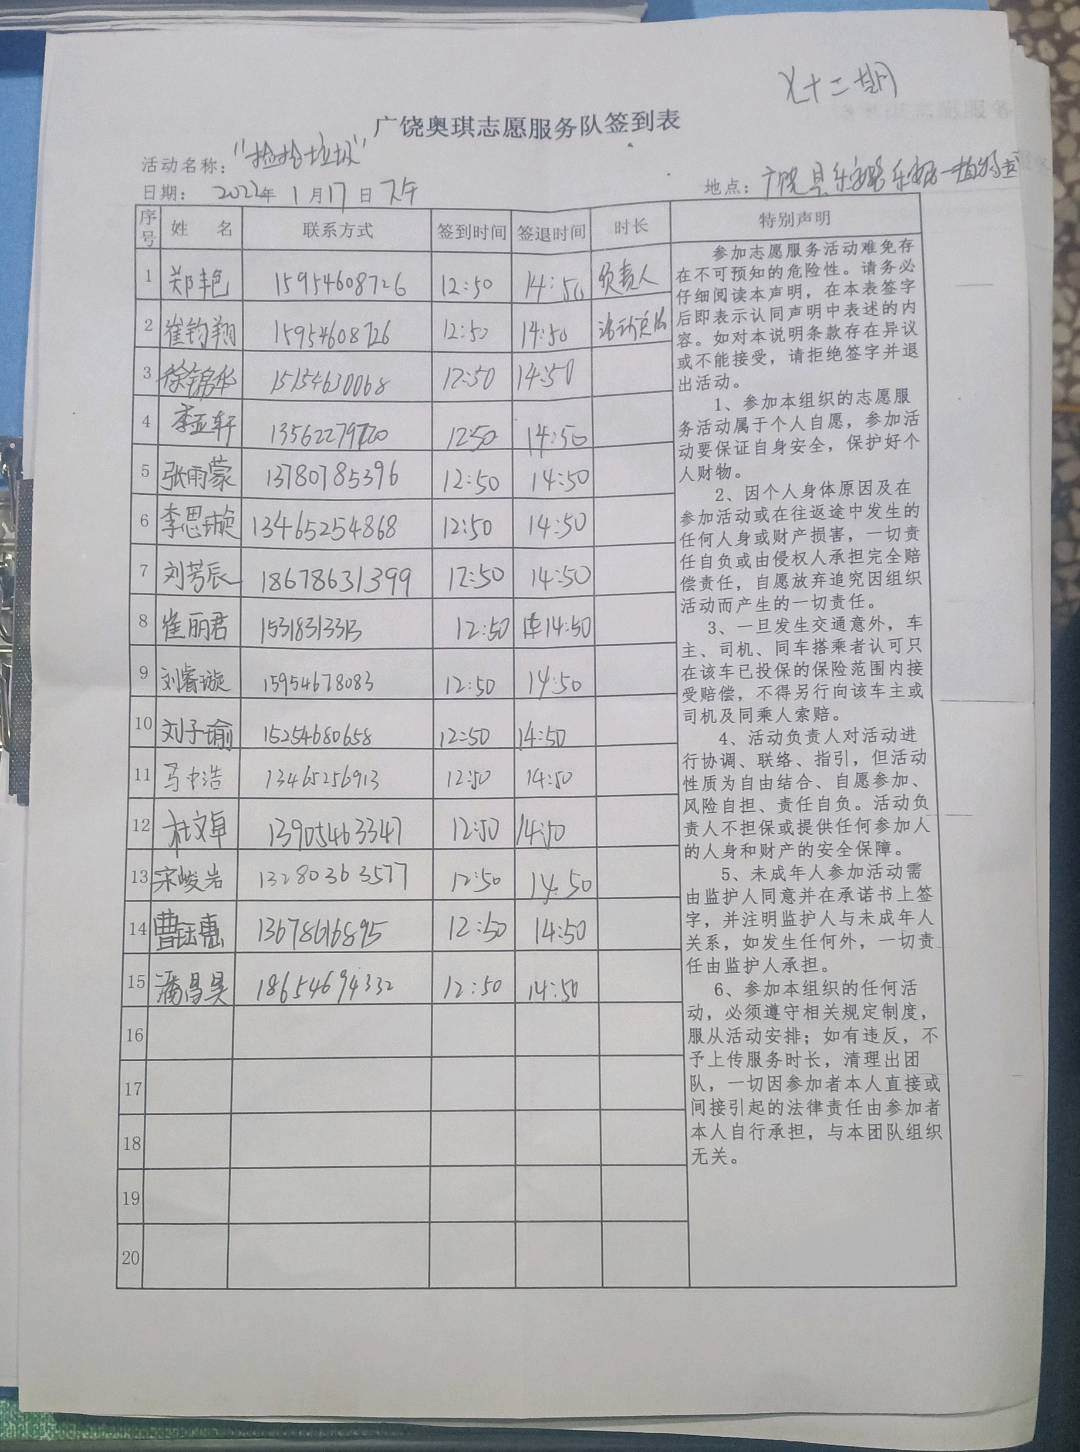 十二期
广饶奥琪志愿服务队签到表
活动名称："捡拾垃圾"
日期： 2022年 1月17日 下午
地点：广饶县乐安路
序号 姓 名 联系方式 签到时间 签退时间 时长 特别声明
1 郑艳 15954608726 12:50 14:50 负责人
2 崔钧翔 15954608726 12:50 14:50
3 徐锦华 15154630068 12:50 14:50
4 李亚轩 12:50 14:50
5 张雨蒙 13780785396 12:50 14:50
6 李思璇 13465254868 12:50 14:50
7 刘芳辰 18678631399 12:50 14:50
8 崔丽君 15318313313 12:50 14:50
9 刘睿璇 15954678083 12:50 14:50
10 刘子瑜 15254680658 12:50 14:50
11 马中浩 13465256913 12:50 14:50
12 杜文卓 13905463347 12:50 14:50
13 宋峻岩 13280363577 12:50 14:50
14 曹钰惠 13678616895 12:50 14:50
15 潘昌昊 18654694332 12:50 14:50
16
17
18
19
20
参加志愿服务活动难免存
在不可预知的危险性。请务必
仔细阅读本声明，在本表签字
后即表示认同声明中表述的内
容。如对本说明条款存在异议
或不能接受，请拒绝签字并退
出活动。
1、参加本组织的志愿服
务活动属于个人自愿，参加活
动要保证自身安全，保护好个
人财物。
2、因个人身体原因及在
参加活动或在往返途中发生的
任何人身或财产损害，一切责
任自负或由侵权人承担完全赔
偿责任，自愿放弃追究因组织
活动而产生的一切责任。
3、一旦发生交通意外，车
主、司机、同车搭乘者认可只
在该车已投保的保险范围内接
受赔偿，不得另行向该车主或
司机及同乘人索赔。
4、活动负责人对活动进
行协调、联络、指引，但活动
性质为自由结合、自愿参加、
风险自担、责任自负。活动负
责人不担保或提供任何参加人
的人身和财产的安全保障。
5、未成年人参加活动需
由监护人同意并在承诺书上签
字，并注明监护人与未成年人
关系，如发生任何外，一切责
任由监护人承担。
6、参加本组织的任何活
动，必须遵守相关规定制度，
服从活动安排；如有违反，不
予上传服务时长，清理出团
队，一切因参加者本人直接或
间接引起的法律责任由参加者
本人自行承担，与本团队组织
无关。